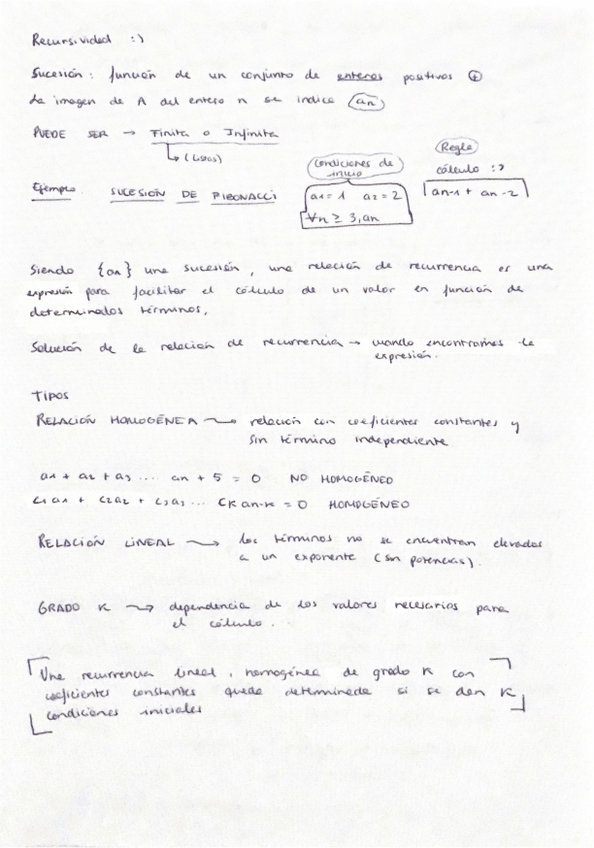 Recursividad :)
Sucesión: función de un conjunto de enteros positivos ⊕
La imagen de A del entero n se indica an
PUEDE SER → Finita o Infinita
↳ (Listas)
Condiciones de inicio
Regla cálculo :)
Ejemplo. SUCESIÓN DE FIBONACCI
a1 = 1 a2 = 2
∀n ≥ 3, an
an-1 + an-2
Siendo {an} una sucesión, una relación de recurrencia es una
expresión para facilitar el cálculo de un valor en función de
determinados términos.
Solución de la relación de recurrencia → cuando encontramos la
expresión.
TIPOS
RELACIÓN HOMOGÉNEA ⟿ relación con coeficientes constantes y
sin término independiente
a1 + a2 + a3 .... an + 5 = 0 NO HOMOGÉNEO
c1a1 + c2a2 + c3a3 ... CK an-k = 0 HOMOGÉNEO
RELACIÓN LINEAL ⟿ los términos no se encuentran elevados
a un exponente (sin potencias).
GRADO K ⟿ dependencia de los valores necesarios para
el cálculo.
Una recurrencia lineal, homogénea de grado K con
coeficientes constantes queda determinada si se dan K
condiciones iniciales